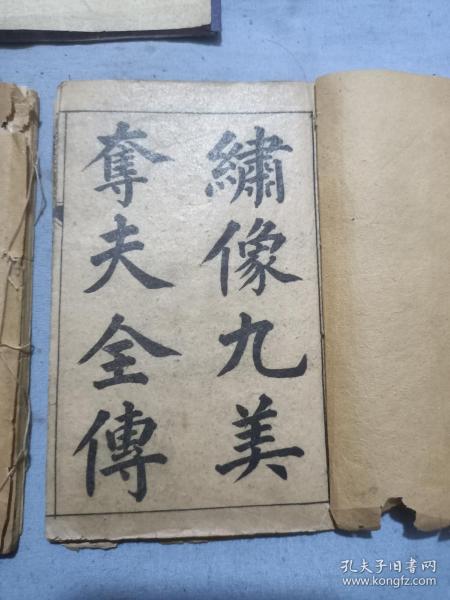 繡像九美
奪夫全傳
孔夫子旧书网
www.kongfz.com